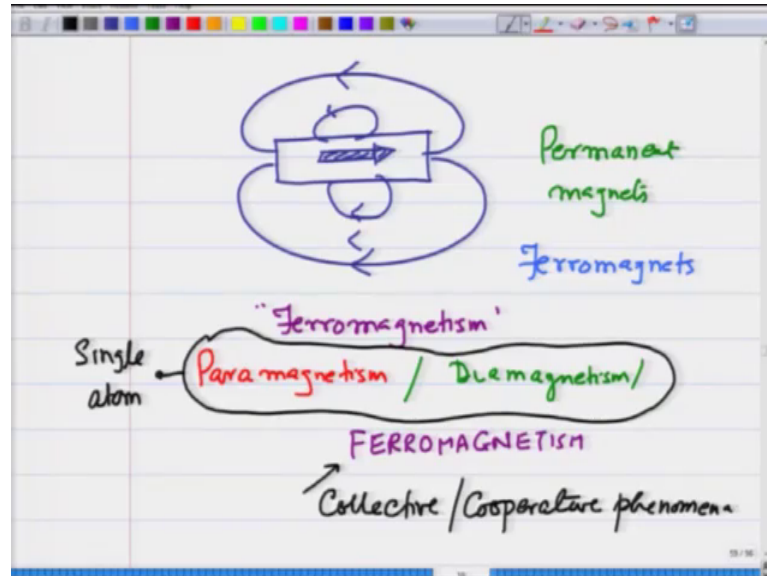 Permanent
magnets
Ferromagnets
"Ferromagnetism"
Single
atom
Paramagnetism / Diamagnetism/
FERROMAGNETISM
Collective/Cooperative phenomena
55/56